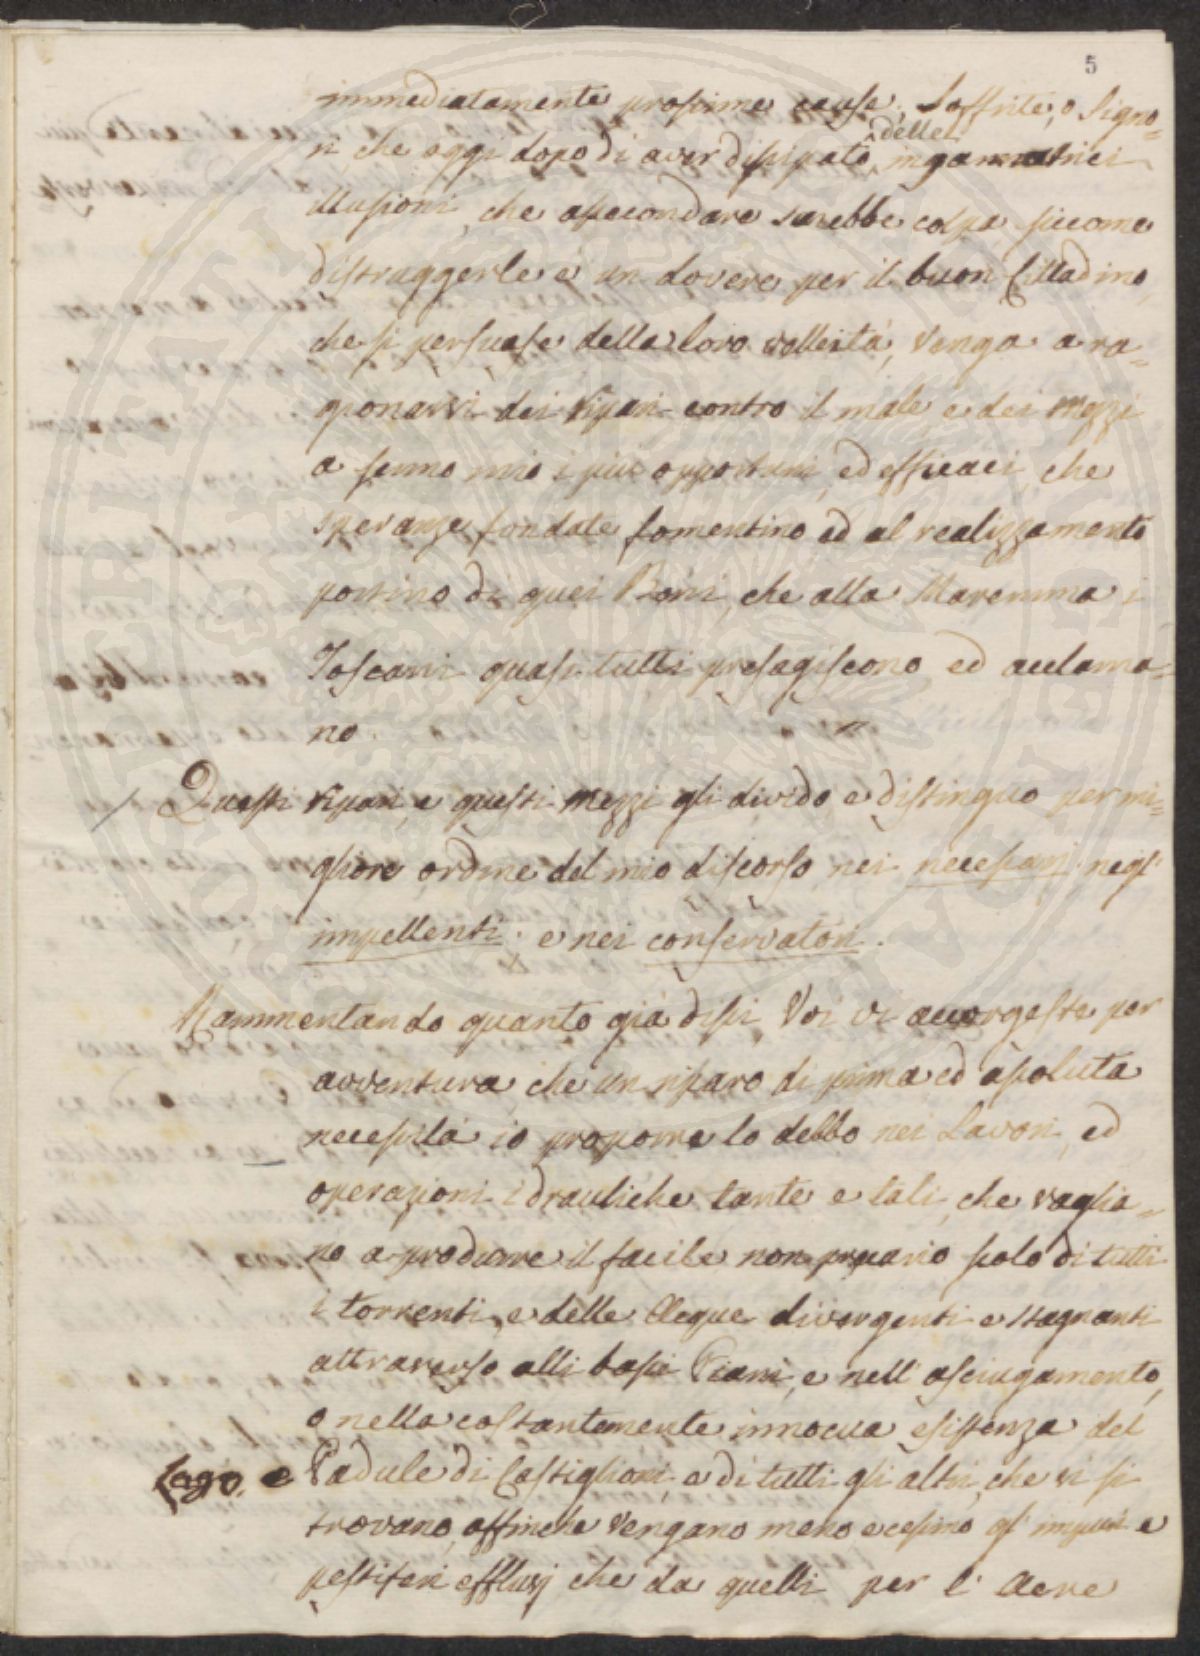 5
immediatamente prossime cause. Soffrite, o Signo=
ri che oggi dopo di aver dissipate delle ingannatrici
illusioni, che assecondare sarebbe colpa, siccome
distruggerle è un dovere per il buon Cittadino,
che si persuase della loro, venga a ra=
gionarvi dei ripari contro il male, e dei mezzi
a senno mio i più opportuni, ed efficaci, che
speranze fondate fomentino ed al realizzamento
portino di quei Beni, che alla Maremma i
Toscani quasi tutti presagiscono ed acclama=
no.
Questi ripari, e questi mezzi gli divido e distinguo per mi=
gliore ordine del mio discorso nei necessari negl'
impellenti; e nei conservatori.
Rammentando quanto già dissi Voi vi accorgeste per
avventura che un riparo di prima ed assoluta
necessità io proporre lo debbo nei Lavori, ed
operazioni idrauliche tante e tali, che vaglia=
no a produrre il facile non solo di tutti
i torrenti, e delle Acque divergenti e stagnanti
attraverso alli bassi Piani, e nell'asciugamento,
o nella costantemente innocua esistenza del
Lago, e Padule di Castiglioni, e di tutti gli altri, che vi si
trovano, affinchè vengano meno, e cessino gl'impuri e
pestiferi effluvj che da quelli per l'Aere